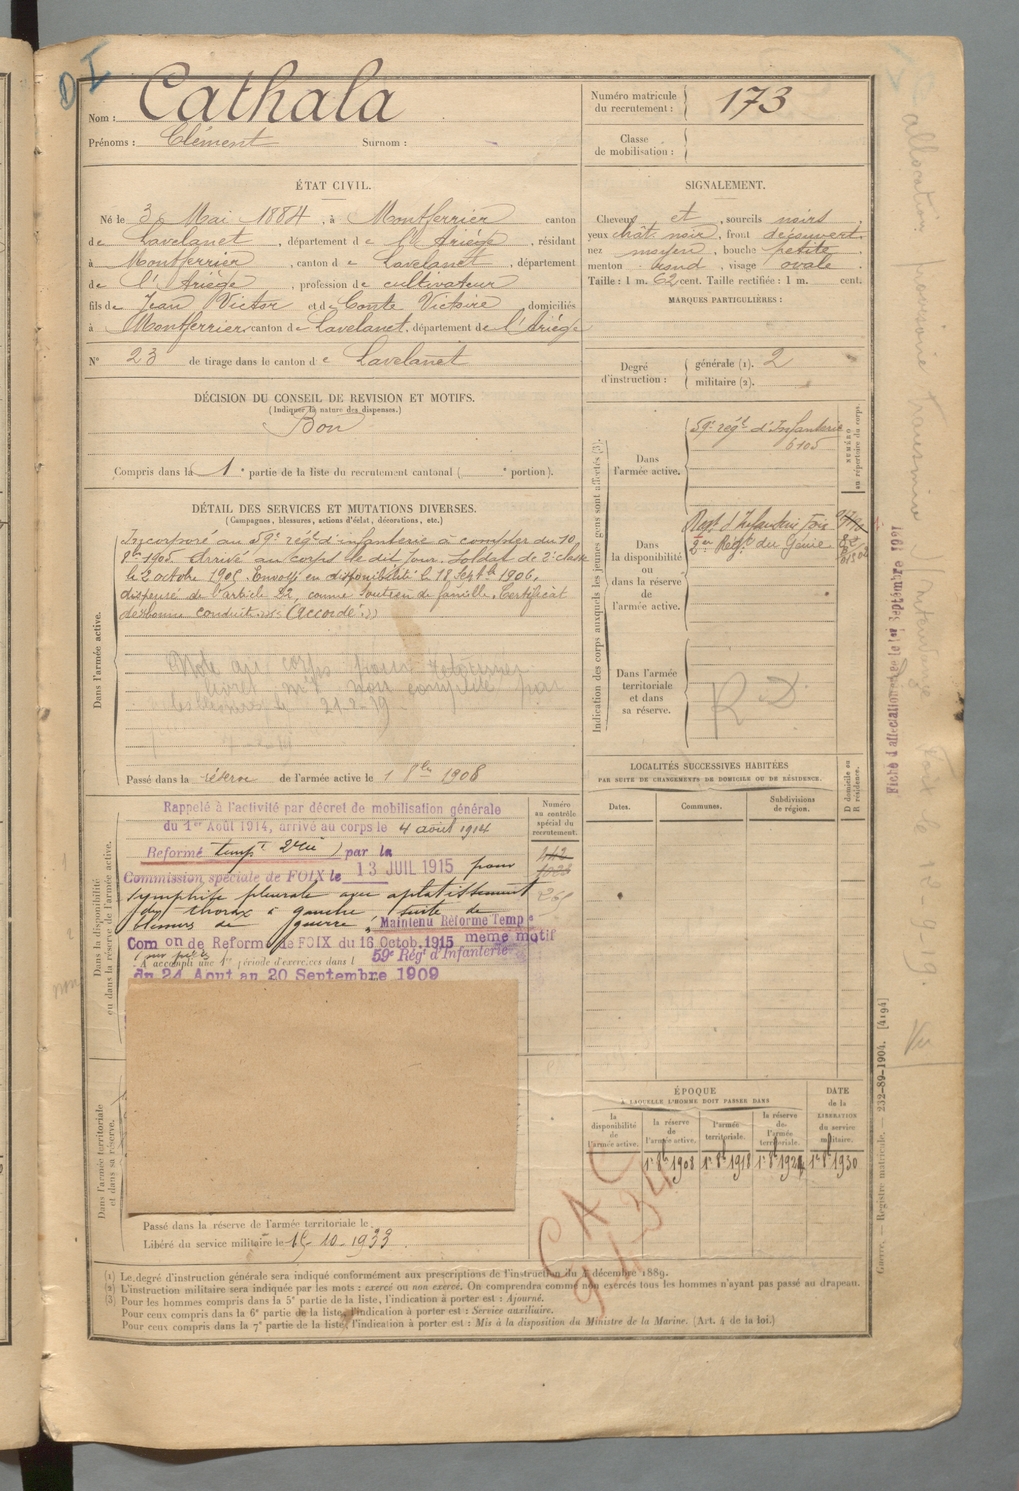 D I
Nom : Cathala
Prénoms : Clément Surnom :
Numéro matricule du recrutement : 173
Classe de mobilisation :
ÉTAT CIVIL.
Né le 3 Mai 1884, à Montferrier canton
de Lavelanet, département de l'Ariège, résidant
à Montferrier, canton de Lavelanet, département
de l'Ariège, profession de cultivateur
fils de Jean Victor et de Comte Victoire domiciliés
à Montferrier, canton de Lavelanet, département de l'Ariège
N° 23 de tirage dans le canton de Lavelanet
SIGNALEMENT.
Cheveux et, sourcils noirs,
yeux chât. noir, front découvert,
nez moyen, bouche petite,
menton rond, visage ovale.
Taille : 1 m. 62 cent. Taille rectifiée : 1 m. cent.
MARQUES PARTICULIÈRES :
Degré d'instruction : générale (1). 2
militaire (2).
DÉCISION DU CONSEIL DE REVISION ET MOTIFS.
(Indiquer la nature des dispenses.)
Bon
Compris dans la 1e partie de la liste du recrutement cantonal ( e portion).
DÉTAIL DES SERVICES ET MUTATIONS DIVERSES.
(Campagnes, blessures, actions d'éclat, décorations, etc.)
Dans l'armée active.
Incorporé au 59e régt d'infanterie à compter du 10
8bre 1905. Arrivé au corps le dit jour. Soldat de 2e classe
le 2 octobre 1905. Envoyé en disponibilité le 18 Septbre 1906,
dispensé de l'article 22, comme soutien de famille. Certificat
de bonne conduite (accordé)
Note au corps pour
livret mle non complété par
21-2-19
Passé dans la réserve de l'armée active le 1 8bre 1908
Indication des corps auxquels les jeunes gens sont affectés (3).
NUMÉRO au répertoire du corps.
Dans l'armée active.
59e régt d'Infanterie
6105
Dans la disponibilité ou dans la réserve de l'armée active.
Regt d'Infanterie Foix
2e Régt du Génie
Dans l'armée territoriale et dans sa réserve.
R D
LOCALITÉS SUCCESSIVES HABITÉES
PAR SUITE DE CHANGEMENTS DE DOMICILE OU DE RÉSIDENCE.
D domicile ou R résidence.
Dates. Communes. Subdivisions de région.
Dans la disponibilité ou dans la réserve de l'armée active.
Numéro au contrôle spécial du recrutement.
Rappelé à l'activité par décret de mobilisation générale
du 1er Août 1914, arrivé au corps le 4 août 1914
Réformé tempt 2 par la
Commission spéciale de FOIX le 13 JUIL 1915 pour
symphise pleurale avec aplatissement
du thorax à gauche, suite de
blessures de guerre, Maintenu Réformé Temp e
Com on de Reforme de FOIX du 16 Octob. 1915 même motif
A accompli une 1re période d'exercices dans l 59e Régt d'Infanterie
du 24 Aout au 20 Septembre 1909
Dans l'armée territoriale et dans sa réserve.
Passé dans la réserve de l'armée territoriale le
Libéré du service militaire le 15-10-1933
ÉPOQUE
À LAQUELLE L'HOMME DOIT PASSER DANS
DATE de la LIBÉRATION du service militaire.
la disponibilité de l'armée active.
la réserve de l'armée active.
l'armée territoriale.
la réserve de l'armée territoriale.
1r 8b 1908 1r 8b 1918 1r 8b 1924 1r 8b 1930
CAC
(1) Le degré d'instruction générale sera indiqué conformément aux prescriptions de l'instruction du 4 décembre 1889.
(2) L'instruction militaire sera indiquée par les mots : exercé ou non exercé. On comprendra comme non exercés tous les hommes n'ayant pas passé au drapeau.
(3) Pour les hommes compris dans la 5e partie de la liste, l'indication à porter est : Ajourné.
Pour ceux compris dans la 6e partie de la liste, l'indication à porter est : Service auxiliaire.
Pour ceux compris dans la 7e partie de la liste, l'indication à porter est : Mis à la disposition du Ministre de la Marine. (Art. 4 de la loi.)
Guerre. — Registre matricule. — 232-89-1904. [4194]
Fiche d'affectation de le 1er Septembre 1921
allocation provisoire transmise à l'Intendance Foix le 12-9-19. Vu